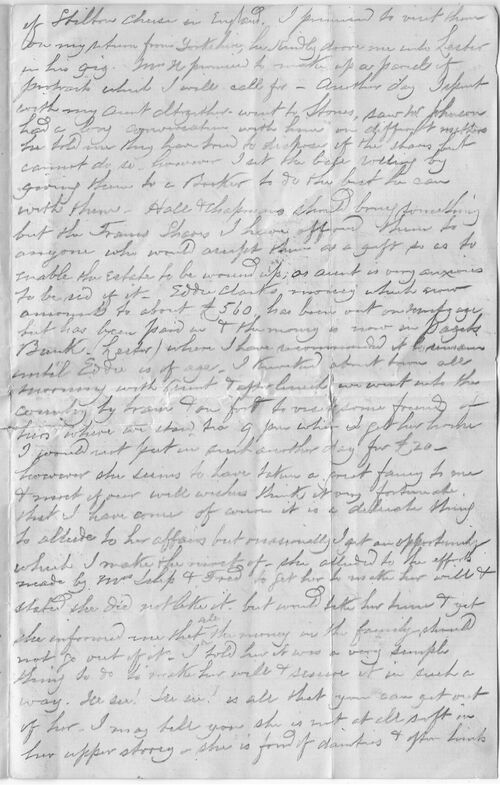 of Stilton Cheese in England. I promised to visit them
on my return from Yorkshire, he kindly drove me into Lester
in his gig. Mrs H promised to make up a parcel of
portraits which I will call for – Another day I spent
with my aunt altogether – went to Stones, saw Mr Johnson
had a long conversation with him on different matters
he told me they have tried to dispose of the shares but
cannot do so. However I set the ball rolling by
giving them to a Broker to do the best he can
with them – Hall & Chapmans should bring something
but the Trams Shares I have offered them to
anyone who would accept them as a gift so as to
enable the Estate to be wound up; as aunt is very anxious
to be rid of it – Eddie Clarks, money which now
amounts to about £560, has been out on mortgage
but has been paid in & the money is now in Pagets
Bank (Lester) where I have recommended it to remain
until Eddie is of age. I travelled about town all
morning with aunt & after lunch we went into the
country by train & on foot to visit some friends of
hers where we stayed till 9 pm when I got her home
I would not put in such another day for £20 –
however she seems to have taken a great fancy to me
& most of our well wishes think it very fortunate
that I have come of course it is a delicate thing
to allude to her affairs but occasionally I get an opportunity
which I make the most of – she alluded to the efforts
made by Mrs Islip & Fred to get her to make her will &
stated she did not like it – but would take her time & yet
she informed me that all the money in the family should
not go out of it. I told her it was a very simple
thing to do to make her will & secure it in such a
way. I'll see! I'll see! is all that you can get out
of her. I may tell you she is not at all soft in
her upper storey – she is fond of dainties & often drinks